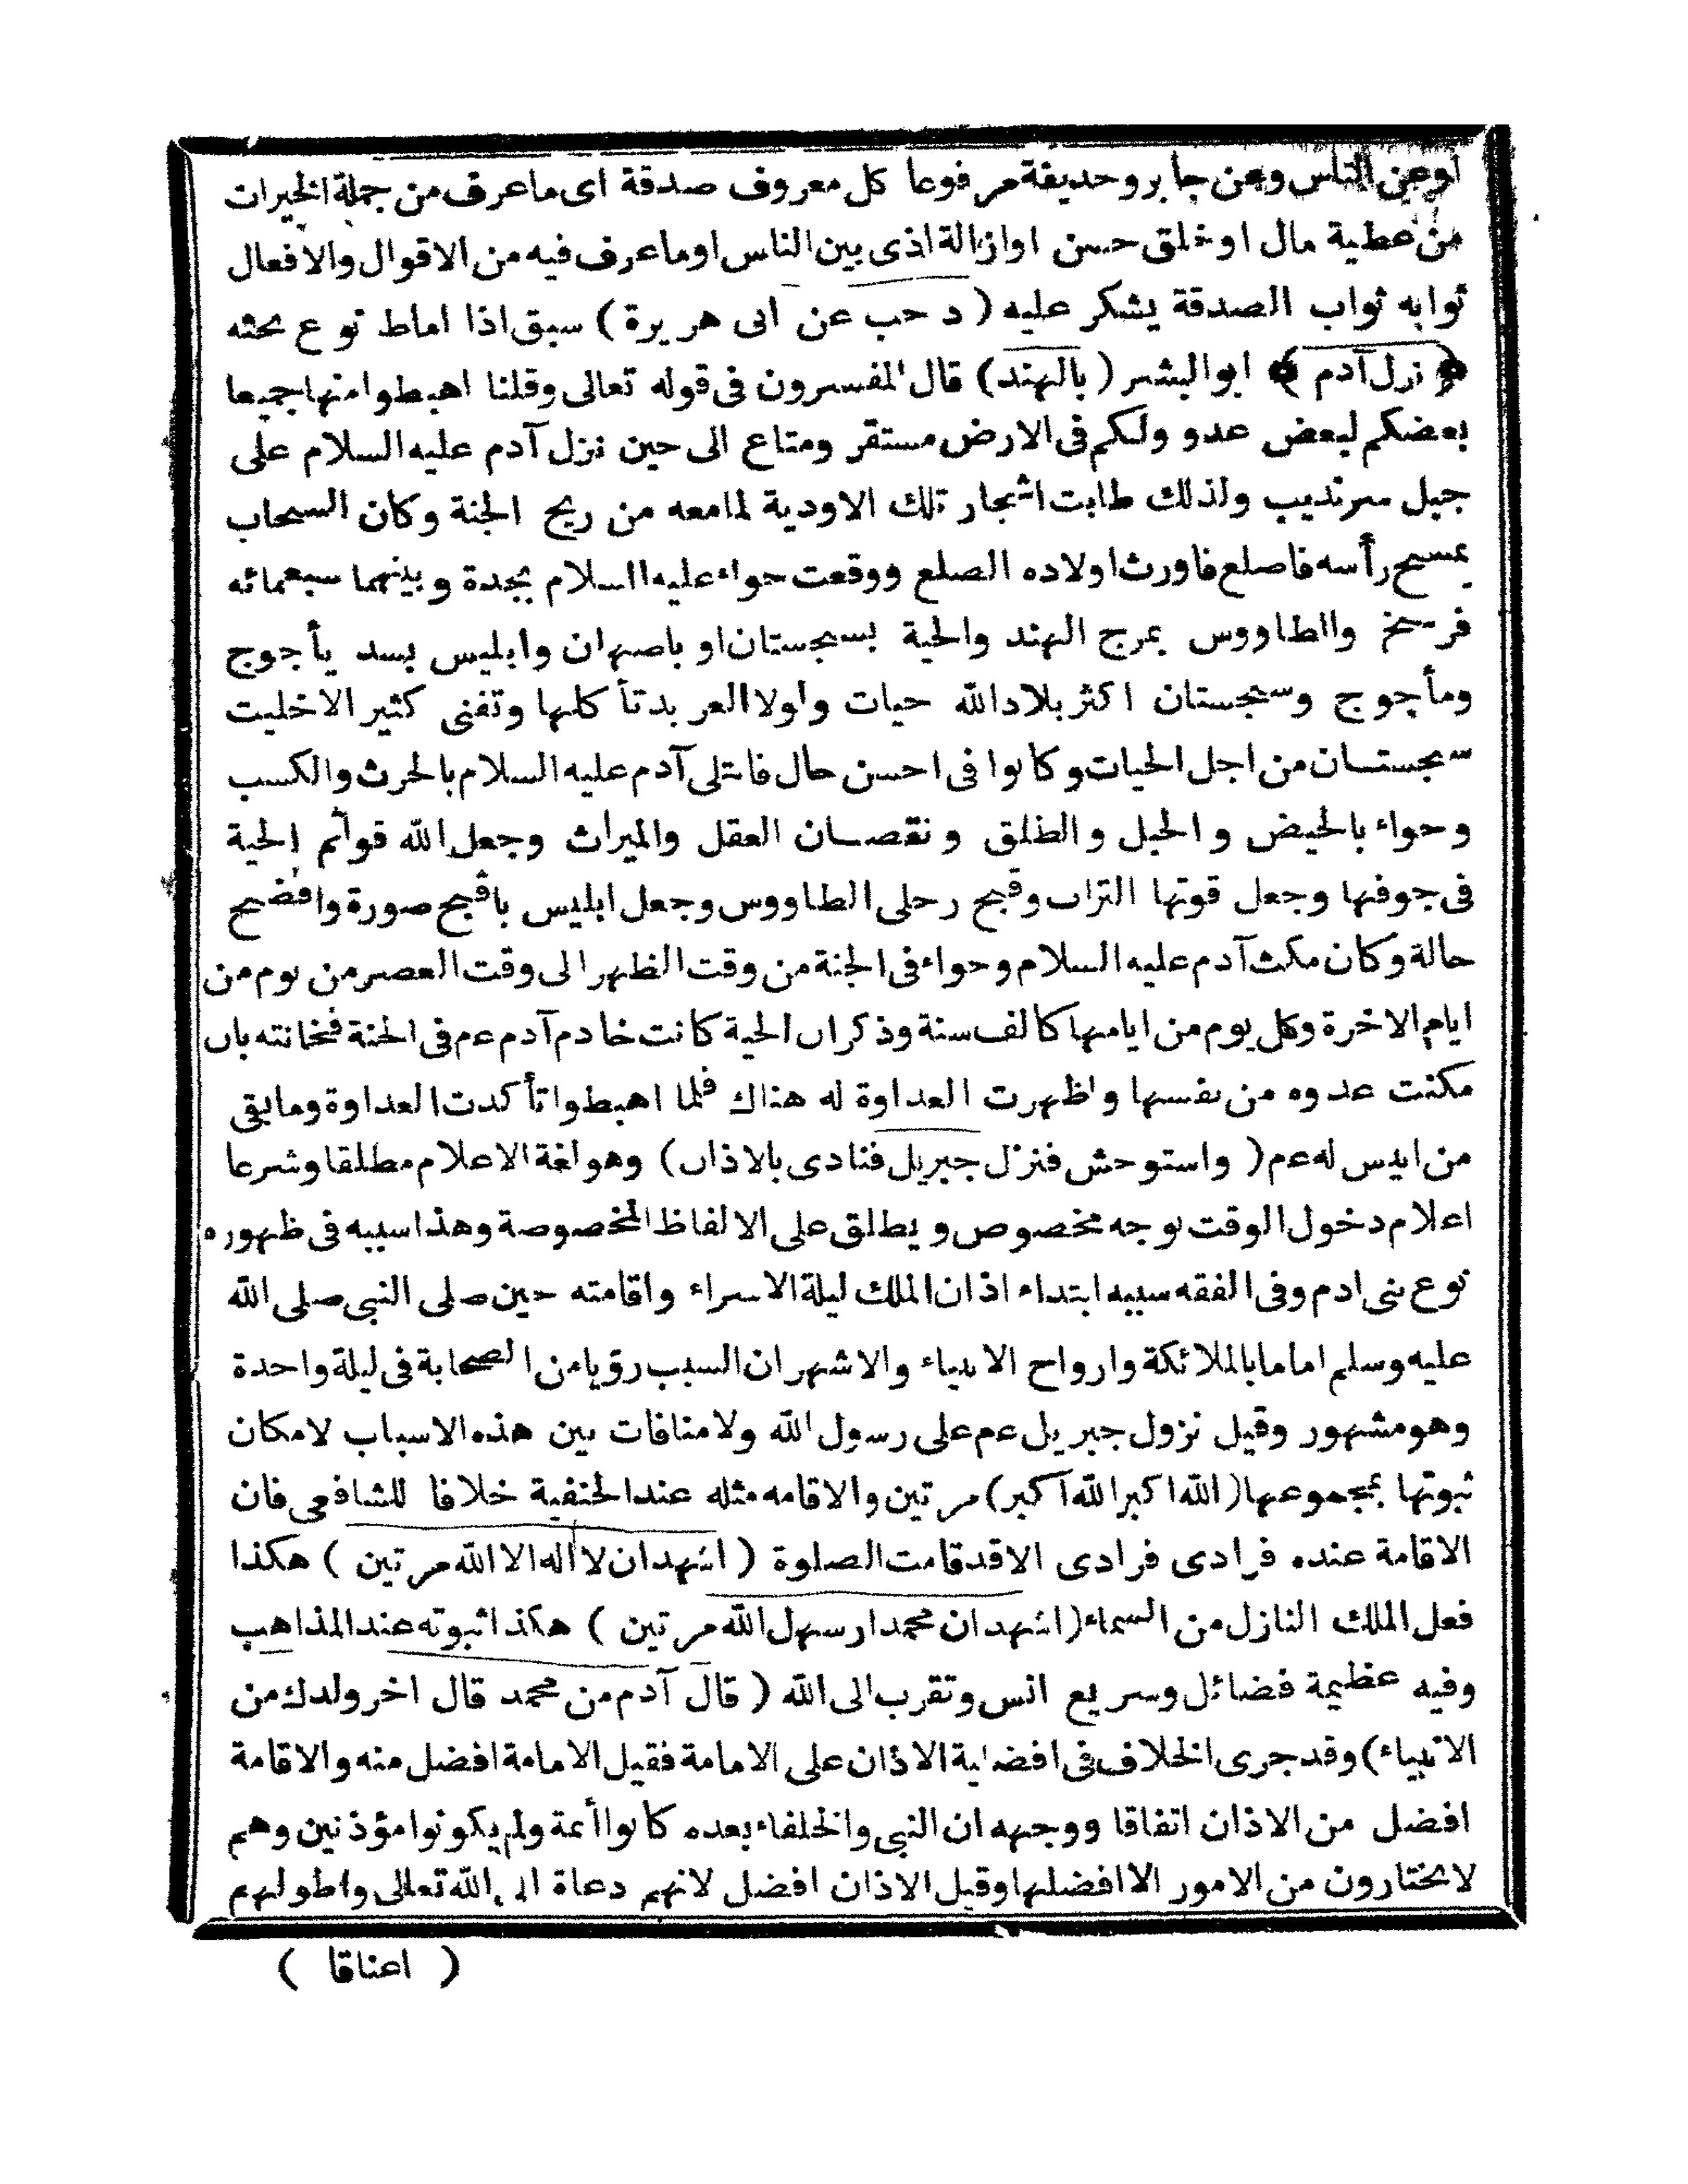 او عن الناس وعن جابر وحديفة مرفوعا كل معروف صدقة اى ماعرف من جملة الخيرات
من عطية مال او خلق حسن اوازالة اذى بين الناس اوما عرف فيه من الاقوال والافعال
ثوابه ثواب الصدقة يشكر عليه (د حب عن ابى هريرة) سبق اذا اماط نوع بحثه
﴿نزل آدم﴾ ابوالبشر (بالهند) قال المفسرون فى قوله تعالى وقلنا اهبطوا منها جميعا
بعضكم لبعض عدو ولكم فى الارض مستقر ومتاع الى حين نزل آدم عليه السلام على
جبل سرنديب ولذلك طابت اشجار تلك الاودية لمامعه من ريح الجنة وكان السحاب
يمسح رأسه فاصلع فاورث اولاده الصلع ووقعت حواء عليه السلام بجدة وبينهما سبعمائه
فرسخ والطاووس بمرج الهند والحية بسجستان او باصبهان وابليس بسد يأجوج
ومأجوج وسجستان اكثر بلاد الله حيات ولولا العربد تأكلها وتفنى كثير الاخليت
سجستان من اجل الحيات وكانوا فى احسن حال فابتلى آدم عليه السلام بالحرث والكسب
وحواء بالحيض والحبل والطلق ونقصان العقل والميراث وجعل الله قوائم الحية
فى جوفها وجعل قوتها التراب وقبح رحلى الطاووس وجعل ابليس باقبح صورة وافضح
حالة وكان مكث آدم عليه السلام وحواء فى الجنة من وقت الظهر الى وقت العصر من يوم من
ايام الاخرة وكل يوم من ايامها كالف سنة وذكر ان الحية كانت خادم آدم عم فى الجنة فخانته بان
مكنت عدوه من نفسها واظهرت العداوة له هناك فلما اهبطوا تأكدت العداوة وما بقى
من ابدس له عم (واستوحش فنزل جبريل فنادى بالاذان) وهو لغة الاعلام مطلقا وشرعا
اعلام دخول الوقت بوجه مخصوص ويطلق على الالفاظ المخصوصة وهذا سببه فى ظهوره
نوع بنى ادم وفى الفقه سببه ابتداء اذان الملك ليلة الاسراء واقامته حين صلى النبى صلى الله
عليه وسلم اماما بالملائكة وارواح الانبياء والاشهر ان السبب رؤيا من الصحابة فى ليلة واحدة
وهو مشهور وقيل نزول جبريل عم على رسول الله ولا منافات بين هذه الاسباب لامكان
ثبوتها بمجموعها (الله اكبر الله اكبر) مرتين والاقامه مثله عند الحنفية خلافا للشافعى فان
الاقامة عنده فرادى فرادى الا قد قامت الصلوة (اشهد ان لا اله الا الله مرتين) هكذا
فعل الملك النازل من السماء (اشهد ان محمدا رسهل الله مرتين) هكذا ثبوته عند المذاهب
وفيه عظيمة فضائل وسريع انس وتقرب الى الله (قال آدم من محمد قال اخر ولدك من
الانبياء) وقد جرى الخلاف فى افضلية الاذان على الامامة فقيل الامامة افضل منه والاقامة
افضل من الاذان اتفاقا ووجهه ان النبى والخلفاء بعده كانوا أئمة ولم يكونوا مؤذنين وهم
لا يختارون من الامور الا افضلها وقيل الاذان افضل لانهم دعاة الى الله تعالى واطولهم
(اعناقا)